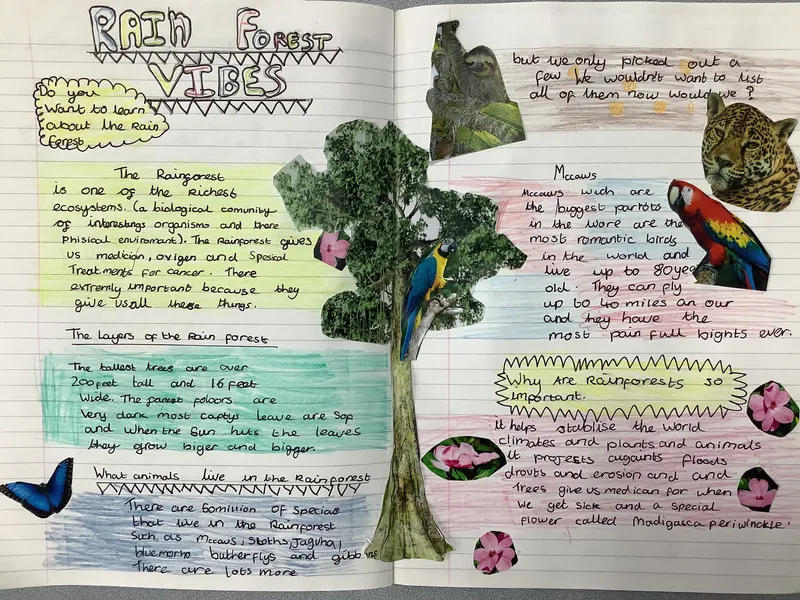 RAIN FOREST
VIBES
Do you
Want to learn
about the Rain
forest
The Rainforest
is one of the richest
ecosystems. (a biological comunity
of interestings organisms and there
Phisical enviromant). The Rainforest gives
us medicion, oxigen and Spesical
Treatments for cancer. There
extremly important because they
give us all these things.
The layers of the Rain forest
The tallest trees are over
200 feet tall and 16 feet
Wide. The forest foloors are
Very dark most captys leave are Sop
and when the Sun hits the leaves
they grow biger and bigger.
What animals live in the Rainforest
There are 60million of Species
that live in the Rainforest
Such as Mccaws, Sloths, Jaguha,
blue morho butterflys and gibbins
There are lots more
but we only picked out a
few We wouldn't want to list
all of them now would we?
Mccaws
Mccaws wich are
the biggest parrots
in the wore are the
most romantic birds
in the world and
live up to 80 year
old. They can fly
up to 40 miles an our
and they have the
most pain full bights ever.
Why Are Rainforests so
important.
it helps stablise the world
climates and plants and animals
it projests againts floods
drouts and erosion and and
Trees give us medican for when
We get sick and a special
flower called Madigasca periwinckle.